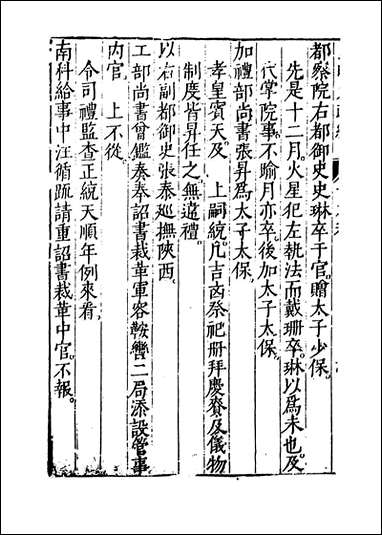 都察院右都御史史琳卒于官。贈太子少保。
先是十二月。火星犯左執法而戴珊卒。琳以爲未也。及
代掌院事。不踰月亦卒。後加太子太保。
加禮部尚書張昇爲太子太保。
孝皇賓天。及 上嗣統。凡吉凶祭祀册拜慶賚及儀物
制度皆昇任之。無違禮。
以右副都御史張泰巡撫陝西。
工部尚書曾鑑奏奉詔書裁革軍容鞍轡二局添設管事
内官 上不從
令司禮監查正統天順年例來看
南科給事中汪循疏請重詔書裁革中官。不報。